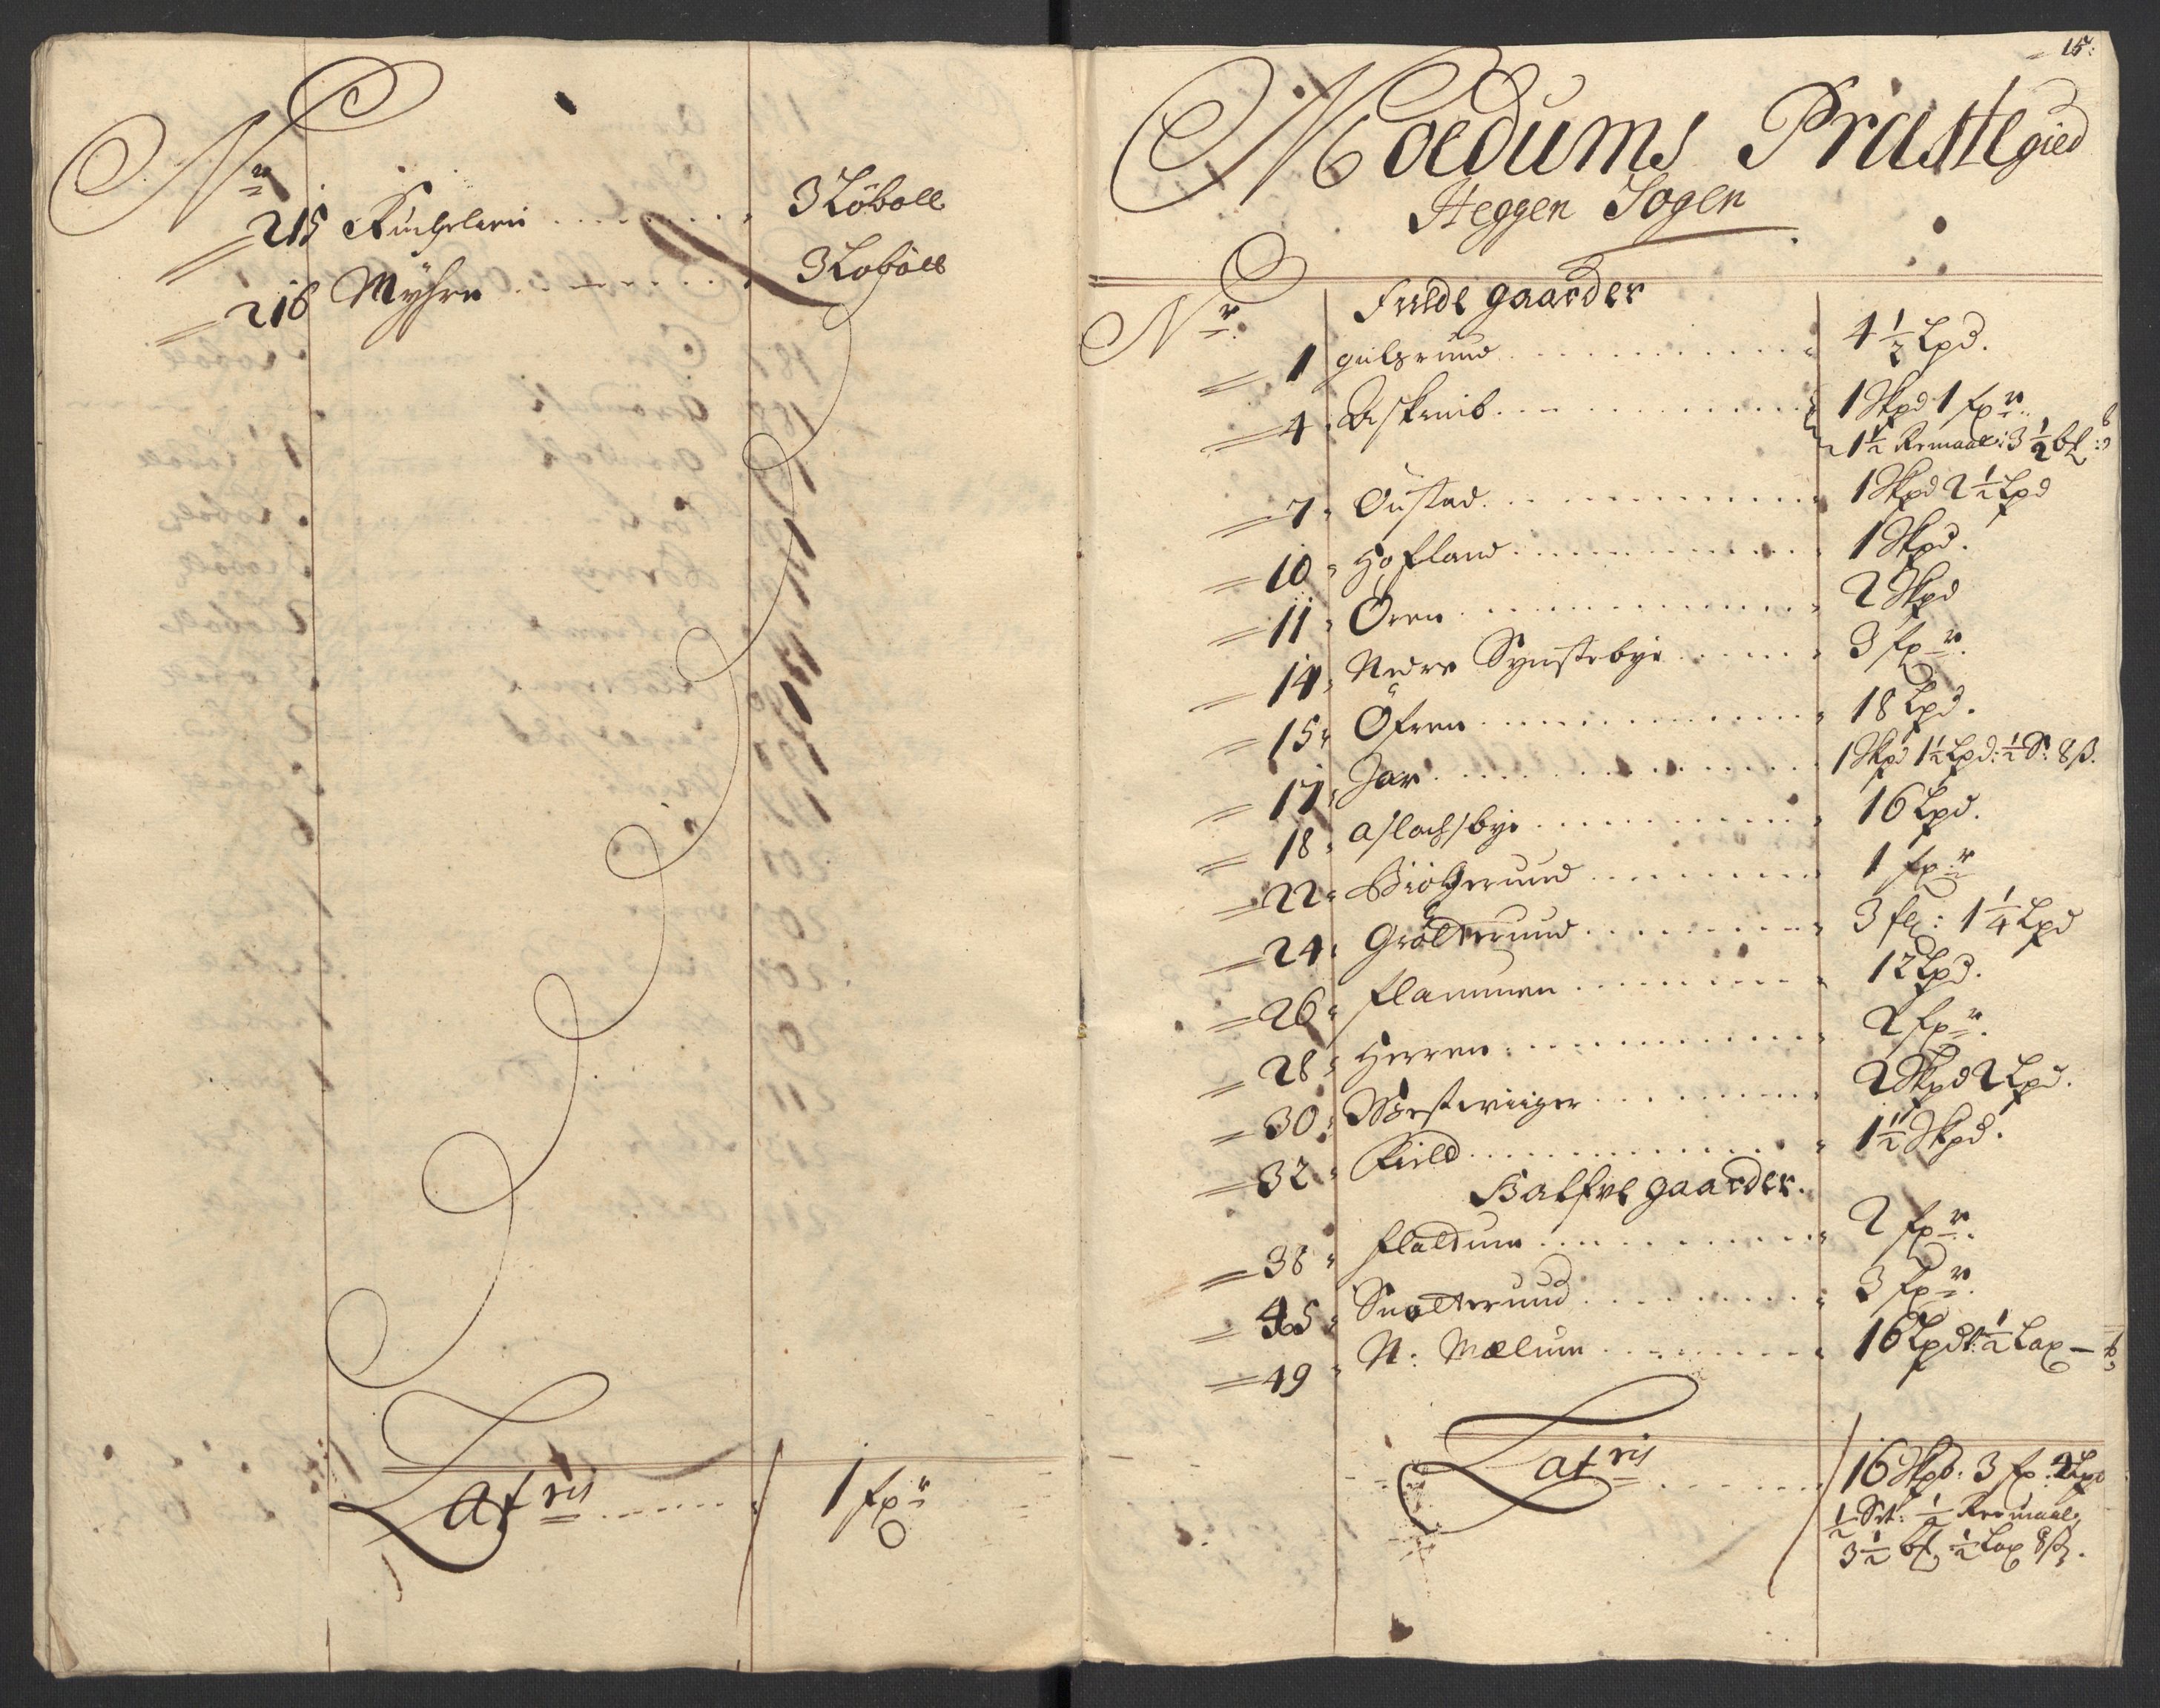 Nr
215 3 Köboll
216 Myhre 3 Koboll
Latris 1 fxr
15:
Moedums Præstegield
Heggen Sogen
Nr Fulde gaarder
1 gulsrund 4 1/2 Lpd.
4 Askmib 1 Skpd 1 fxr
1 1/2 Remaal: 3 1/2 bf:
7 Oustad 1 Skpd 2 1/2 Lpd
10 Hofland 1 Skpd.
11 Oren 2 Skpd
14 Nedre Synstebye 3 fxr.
15 Öfren 18 Lpd.
17 Jar 1 Skpd 1 1/2 Lpd: 1/2 S: 8 ß.
18 Aslachsbye 16 Lpd.
22 Biölgerund 1 fxr
24 Grötterund 3 fl: 1 1/4 Lpd
26 Flannmen 12 Lpd.
28 Herren 2 fxr.
30 Westwiiger 2 Skpd 2 Lpd.
32 Field 1 1/2 Skpd.
Halfve gaarder.
38 Flaldum 2 fxr.
45 Snotterund 3 fxr.
49 N: Mælum 16 Lpd: 1/2 Lax
Latris 16 Skpd: 3 fx: 4 Lpd
1/2 Set: 1/2 Remaal
3 1/2 bf, 1/2 Lax 8 ß.